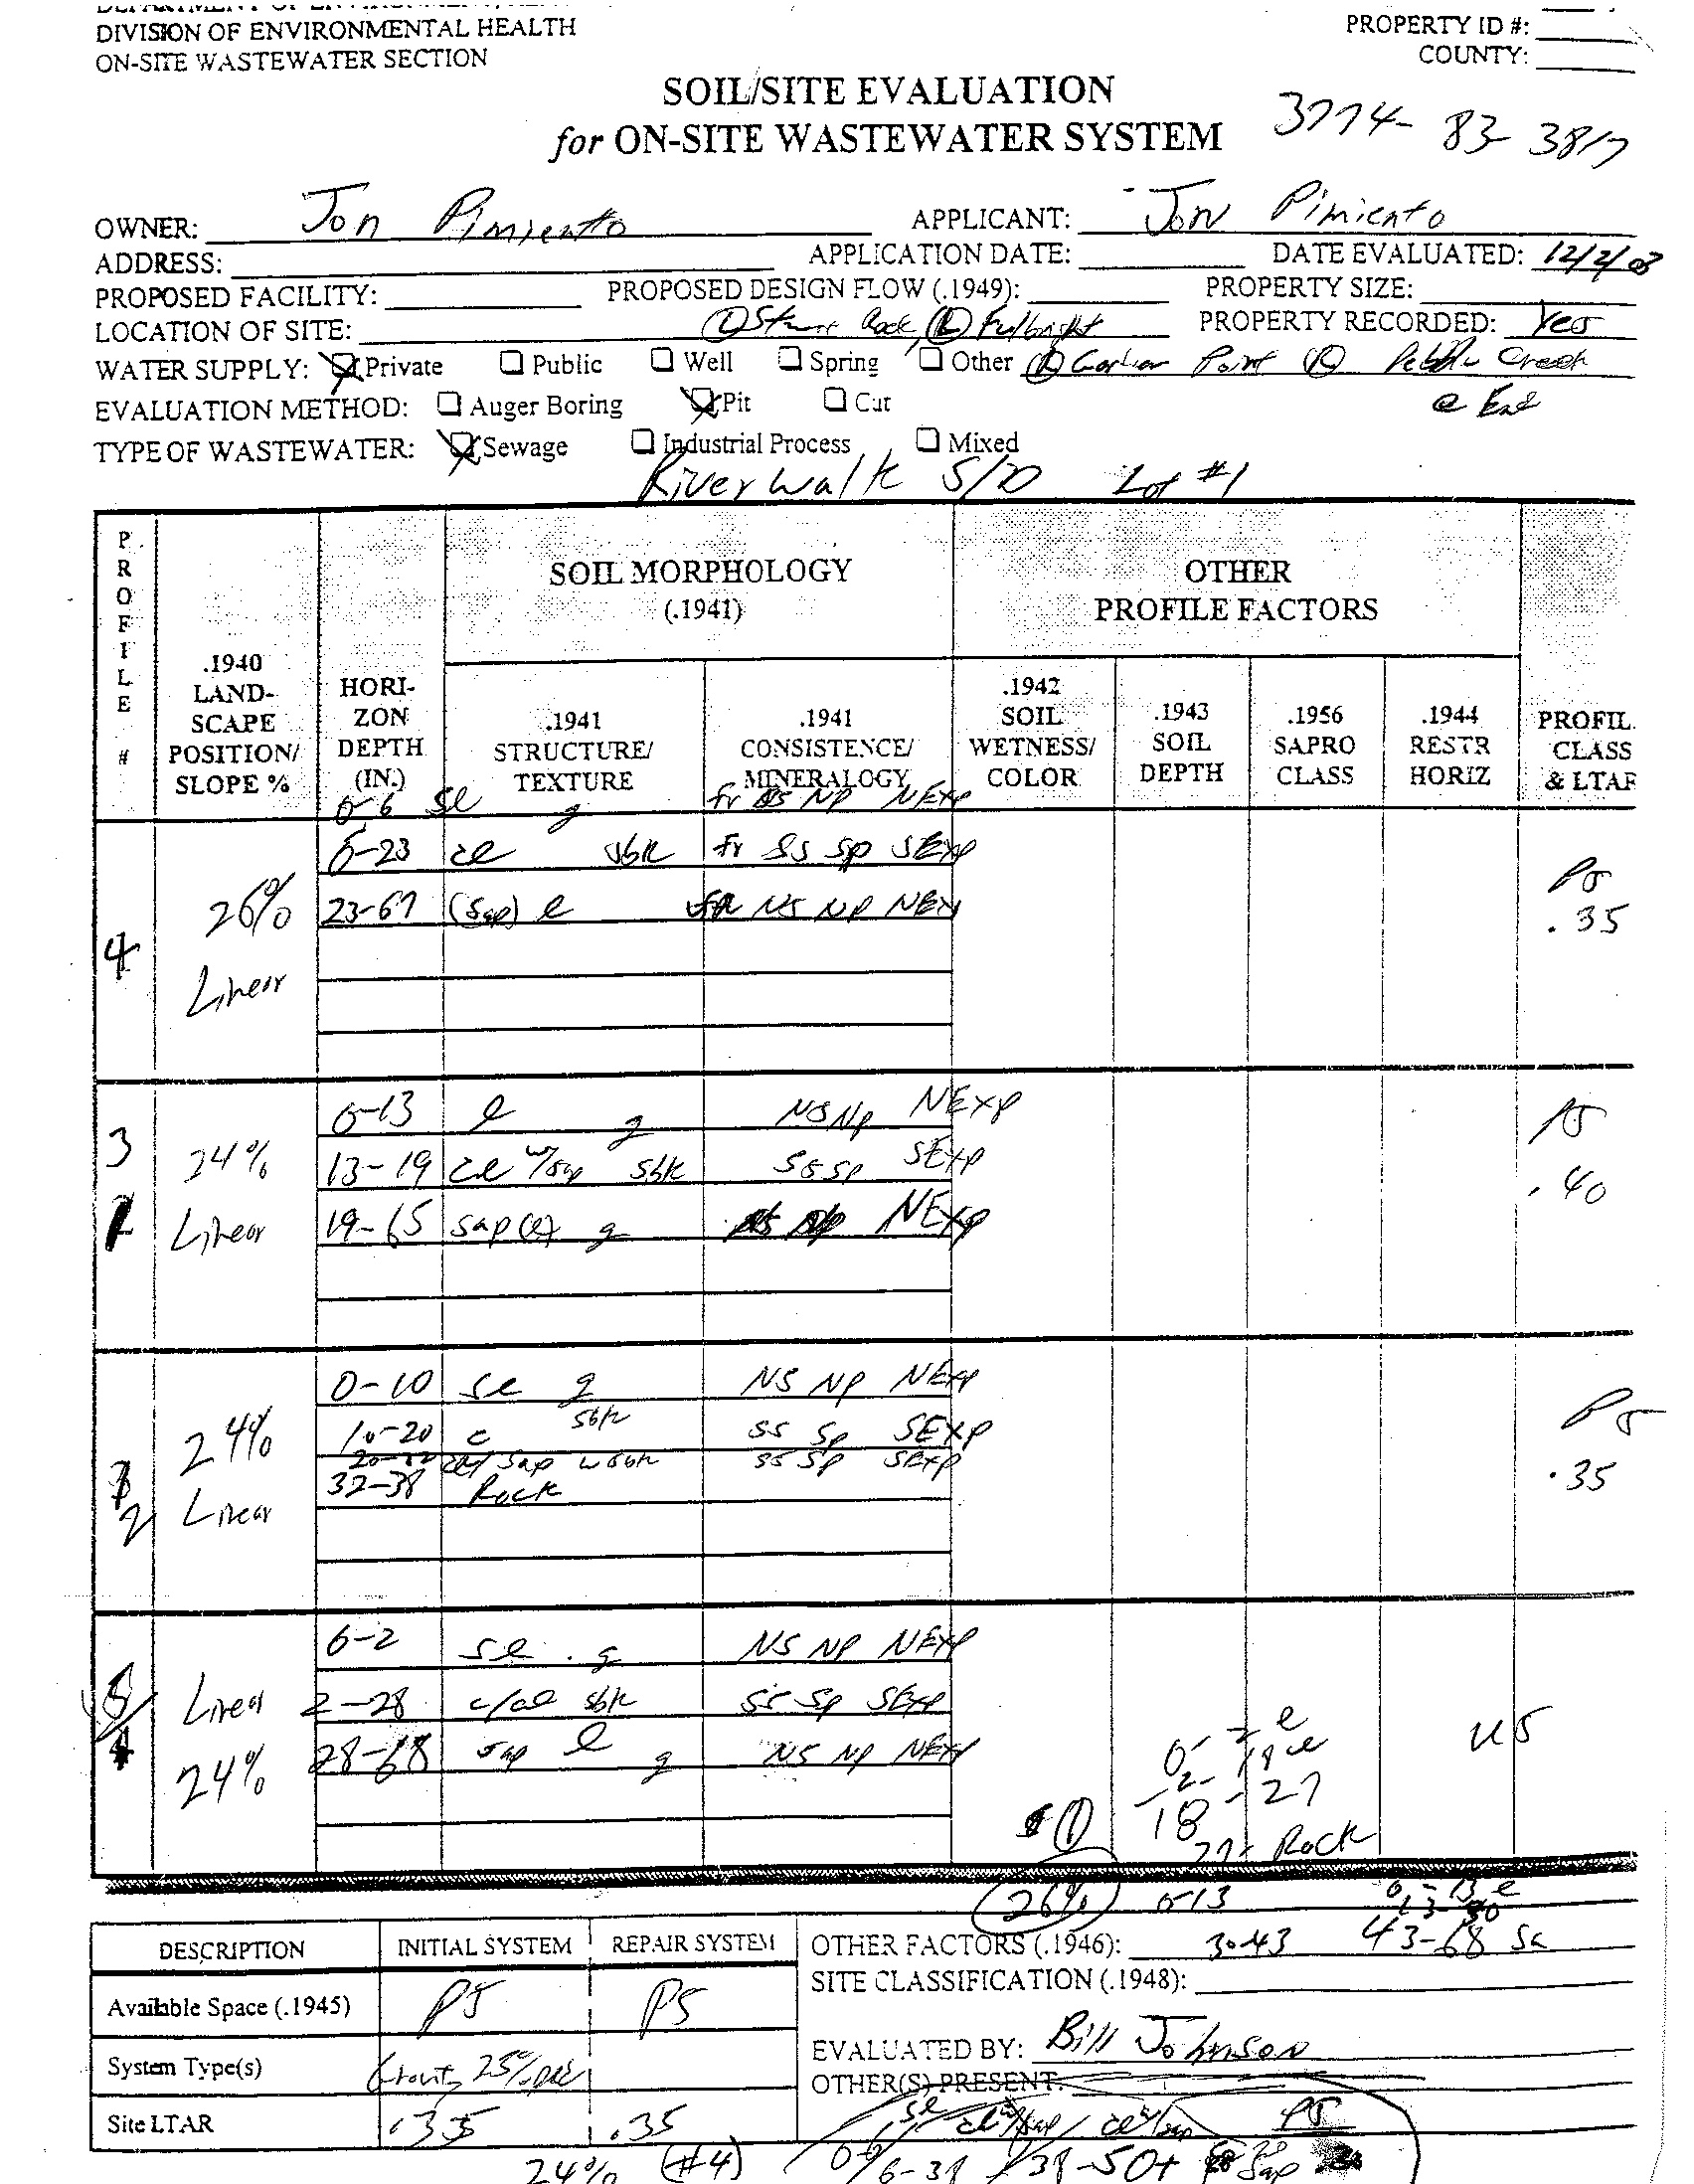 DIVISION OF ENVIRONMENTAL HEALTH
ON-SITE WASTEWATER SECTION
PROPERTY ID #:
COUNTY:
SOIL/SITE EVALUATION
for ON-SITE WASTEWATER SYSTEM
3774- 83- 3817
OWNER: Jon Pimiento APPLICANT: Jon Pimiento
ADDRESS: APPLICATION DATE: DATE EVALUATED: 12/2/03
PROPOSED FACILITY: PROPOSED DESIGN FLOW (.1949): PROPERTY SIZE:
LOCATION OF SITE: Fulbright PROPERTY RECORDED: Yes
WATER SUPPLY: Private Public Well Spring Other Point Pebble Creek
EVALUATION METHOD: Auger Boring Pit Cut @ End
TYPE OF WASTEWATER: Sewage Industrial Process Mixed
Riverwalk S/D Lot #1
PROFILE #
.1940 LAND-SCAPE POSITION/ SLOPE %
HORI-ZON DEPTH (IN.)
SOIL MORPHOLOGY (.1941)
.1941 STRUCTURE/ TEXTURE
.1941 CONSISTENCE/ MINERALOGY
OTHER PROFILE FACTORS
.1942 SOIL WETNESS/ COLOR
.1943 SOIL DEPTH
.1956 SAPRO CLASS
.1944 RESTR HORIZ
PROFIL CLASS & LTAR
0-6 sl g fr NS NP NExp
6-23 cl sbk fr SS SP SExp
4 26% Linear 23-67 (Sap) l NS NP NExp PS .35
0-13 l g NS NP NExp
3 24% 13-19 cl w/sap sbk SS SP SExp PS .40
Linear 19-65 sap (l) g NS NP NExp
0-10 sl g NS NP NExp
24% 10-20 c sbk SS SP SExp PS
20-32 cl/sap w sbk SS SP SExp
2 Linear 32-38 Rock .35
0-2 sl g NS NP NExp
5 Linear 2-28 c/cl sbk SS SP SExp
24% 28-68 sap l g NS NP NExp US
0-2 l
2-18 cl
18-27
27+ Rock
26% 0-13 0-13 l
DESCRIPTION INITIAL SYSTEM REPAIR SYSTEM OTHER FACTORS (.1946): 30-43 43-68 Sa
SITE CLASSIFICATION (.1948):
Available Space (.1945) PS PS
EVALUATED BY: Bill Johnson
System Type(s) Gravity 25% red
OTHER(S) PRESENT:
Site LTAR .35 .35
sl cl w/sap / cl w/sap PS
24% (#4) 0-6 / 6-38 / 38-50+ Sap